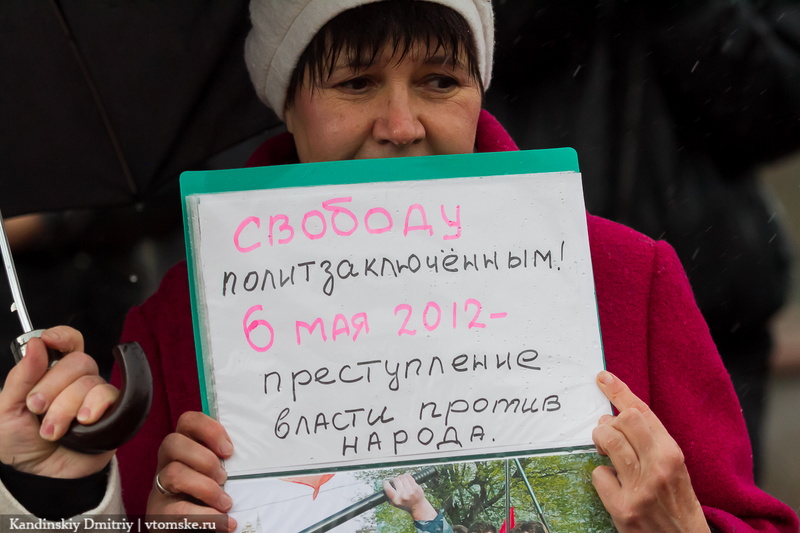 свободу
политзаключённым!
6 мая 2012-
преступление
власти против
народа.
Kandinskiy Dmitriy | vtomske.ru